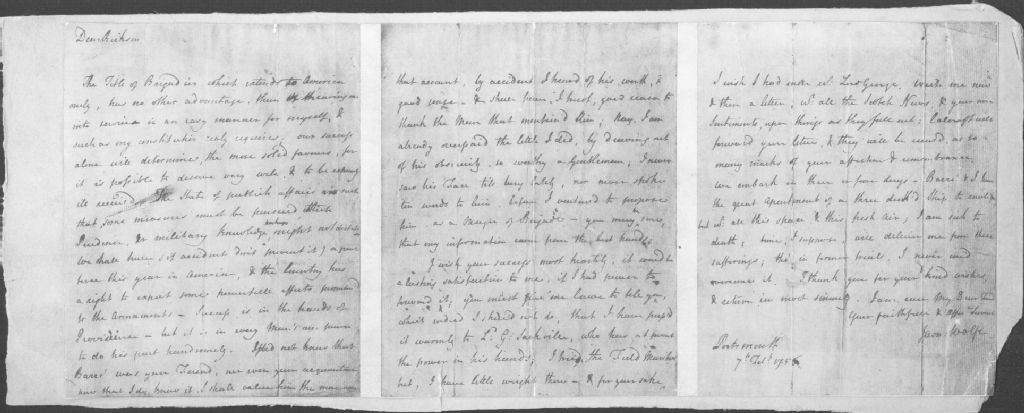 Dear Rickson
The Title of Brigadier which extends to America
only, has no other advantage, than
service in an easy manner for myself, &
such as my constitution really requires; our success
alone will determine the more solid favours, for
it is possible to deserve very well, & to be extremely
ill received. The State of publick affairs is such
that some measures must be pursued which
Prudence, or military knowledge perhaps might not dictate
We shall have (if accident don't prevent it) a
here this year in America, & the Country has
a right to expect some powerfull effects
to the armaments – Success is in the hands of
Providence – but it is in every Man's own power
to do his part handsomely. I did not know that
Barré was your Friend, nor even your acquaintance
now that I do know it, I shall value him the more upon
that account, by accident I heard of his worth, &
good sense – & I have, I trust, good reason to
thank the Man that mentiond him; Nay, I am
already overpaid the little I did, by drawing out
of his obscurity so worthy a Gentleman; I never
saw his Face till very lately, nor never spoke
ten words to him before I ventured to propose
him as a Major of Brigade – you may be sure,
that my information came from the best hands.
I wish your success most heartily, it would be
a lasting satisfaction to me, if I had power to
it; you must give me leave to tell you,
which indeed I should not do, that I have press'd
it warmly to Ld. G: Sackville, who has at present
the power in his hands; I tried the Field Marshal
but, I have little weight there – & for your sake,
I wish I had more wt. Lord George. Write me now
& then a letter, wt. all the Scotch News, & your own
Sentiments upon things as they fall out; Calcraft will
forward your letters, & they will be receiv'd as so
many marks of your affection & remembrance.
we embark in three or four days – Barré & I have
the great apartment of a three deck'd Ship to
but wt. all this space & this fresh air, I am sick to
death; time, I suppose, will deliver me from these
sufferings; tho' in former trials, I never could
overcome it. I thank you for your kind wishes,
& return em most sincerely. I am ever My Dear Friend
Your faithfull & Affte. Servant
James Wolfe.
Portsmouth
7th Feb: